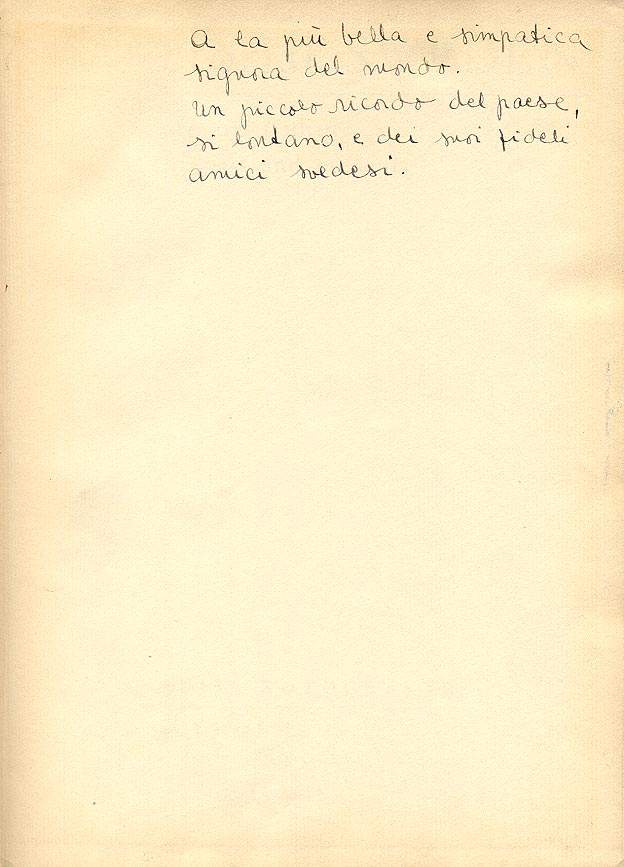 A la più bella e simpatica
signora del mondo.
Un piccolo ricordo del paese,
si lontano, e dei suoi fideli
amici svedesi.